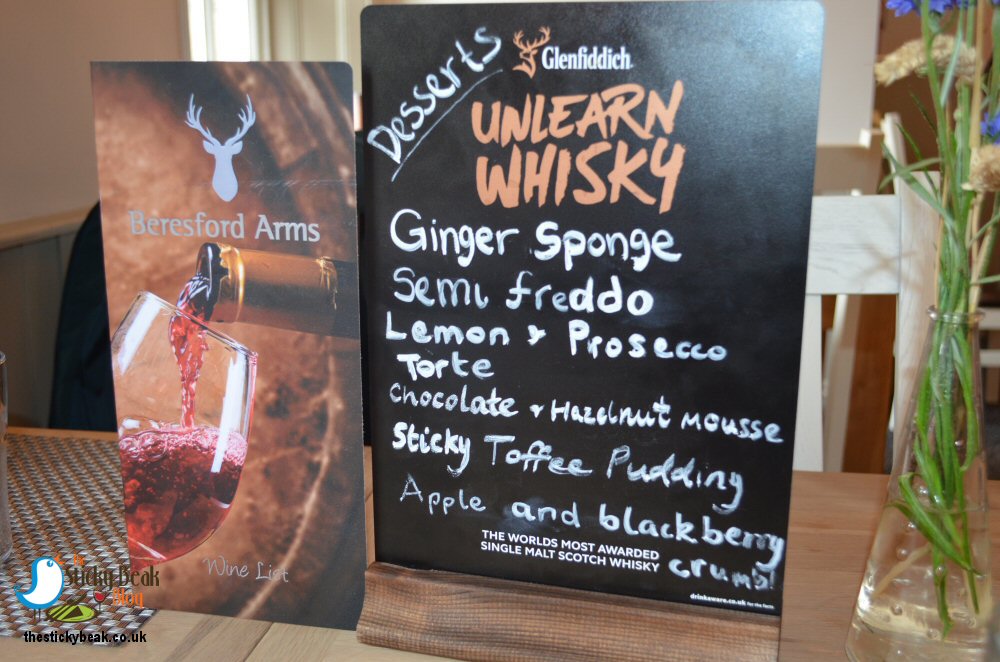 Beresford Arms
Wine List
Desserts
Glenfiddich
UNLEARN
WHISKY
Ginger Sponge
Semi freddo
Lemon & Prosecco
Torte
Chocolate & Hazelnut Mousse
Sticky Toffee Pudding
Apple and blackberry
crumbl
THE WORLDS MOST AWARDED
SINGLE MALT SCOTCH WHISKY
drinkaware.co.uk for the facts
The
Sticky Beak
Blog
thestickybeak.co.uk